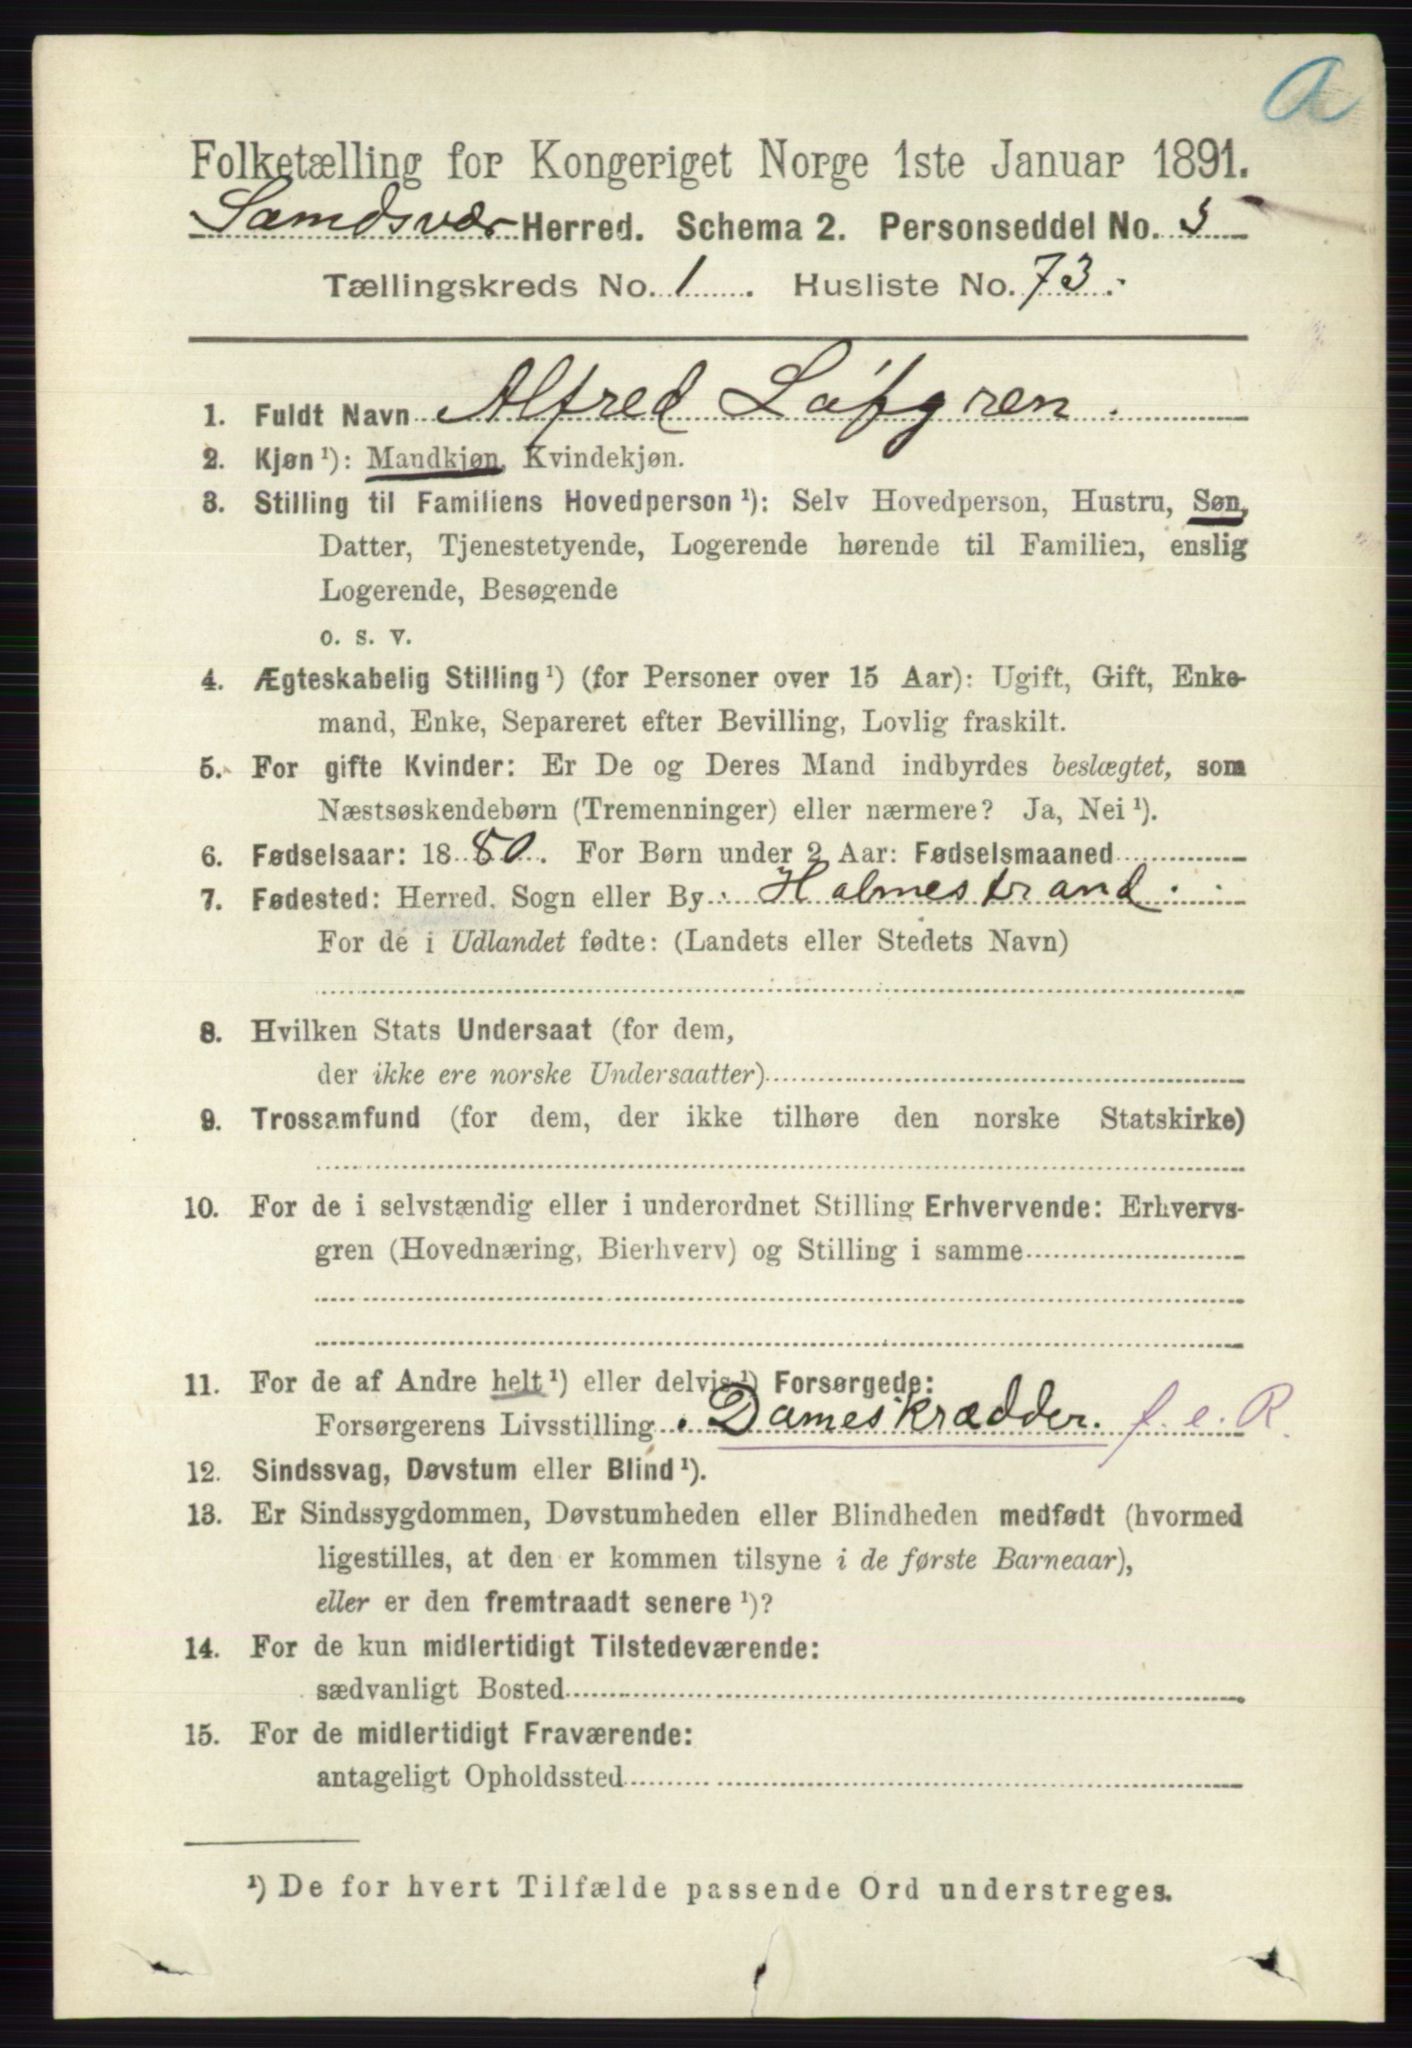 a
Folketælling for Kongeriget Norge 1ste Januar 1891.
Samdsvær Herred. Schema 2. Personseddel No. 5
Tællingskreds No. 1. Husliste No. 73.
1. Fuldt Navn Alfred Løfgren.
2. Kjøn ¹): Mandkjøn, Kvindekjøn.
3. Stilling til Familiens Hovedperson ¹): Selv Hovedperson, Hustru, Søn,
Datter, Tjenestetyende, Logerende hørende til Familien, enslig
Logerende, Besøgende
o. s. v.
4. Ægteskabelig Stilling ¹) (for Personer over 15 Aar): Ugift, Gift, Enke-
mand, Enke, Separeret efter Bevilling, Lovlig fraskilt.
5. For gifte Kvinder: Er De og Deres Mand indbyrdes beslægtet, som
Næstsøskendebørn (Tremenninger) eller nærmere? Ja, Nei ¹).
6. Fødselsaar: 1880. For Børn under 2 Aar: Fødselsmaaned
7. Fødested: Herred, Sogn eller By Holmestrand
For de i Udlandet fødte: (Landets eller Stedets Navn)
8. Hvilken Stats Undersaat (for dem,
der ikke ere norske Undersaatter)
9. Trossamfund (for dem, der ikke tilhøre den norske Statskirke)
10. For de i selvstændig eller i underordnet Stilling Erhvervende: Erhvervs-
gren (Hovednæring, Bierhverv) og Stilling i samme
11. For de af Andre helt ¹) eller delvis ¹) Forsørgede:
Forsørgerens Livsstilling Dameskrædder. f. e. R.
12. Sindssvag, Døvstum eller Blind ¹).
13. Er Sindssygdommen, Døvstumheden eller Blindheden medfødt (hvormed
ligestilles, at den er kommen tilsyne i de første Barneaar),
eller er den fremtraadt senere ¹)?
14. For de kun midlertidigt Tilstedeværende:
sædvanligt Bosted
15. For de midlertidigt Fraværende:
antageligt Opholdssted
¹) De for hvert Tilfælde passende Ord understreges.